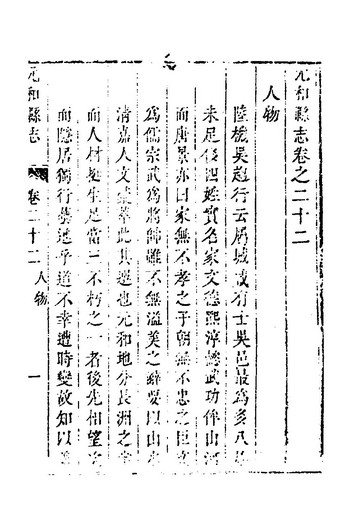 元和縣志卷之二十二
人物
陸機吳趨行云屬城咸有士吳邑最為多八族
未足侈四姓實名家文德熙淳懿武功侔山河
而唐景亦曰家無不孝之子朝無不忠之臣文
為儒宗武為將帥雖不無溢美之辭要以山水
清嘉人文萃此其選也元和地分長洲之
而人材挺生足當三不朽之一者後先相望
而隱居獨行慕逸乎道不幸遭時變故知以
元和縣志
卷二十二
人物
一